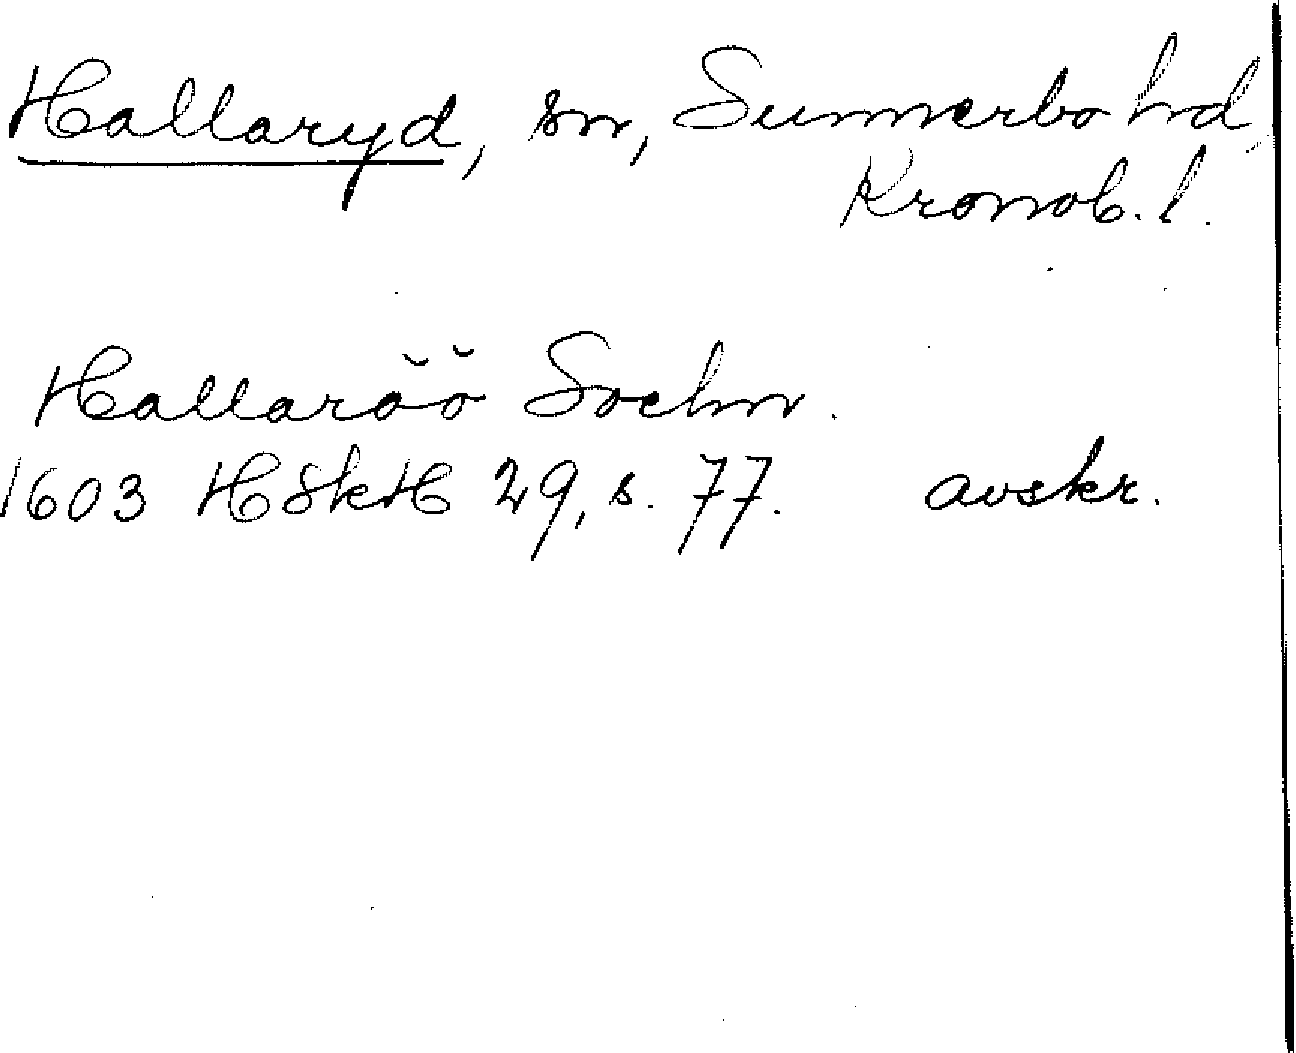 Hallaryd, sn, Sunnerbo hd,
Kronob. l.
Hallarŏŏ Sochn.
1603 HSkH 29, s. 77. avskr.